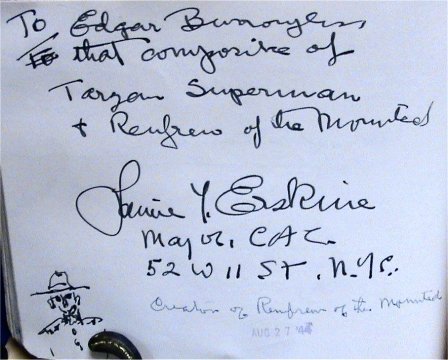 To Edgar Burroughs
that composite of
Tarzan Superman
+ Renfrew of the Mounted
Laurie Y. Erskine
Major, C.A.C.
52 W 11 ST, N.Y.C.
Creator of Renfrew of the Mounted
AUG 27